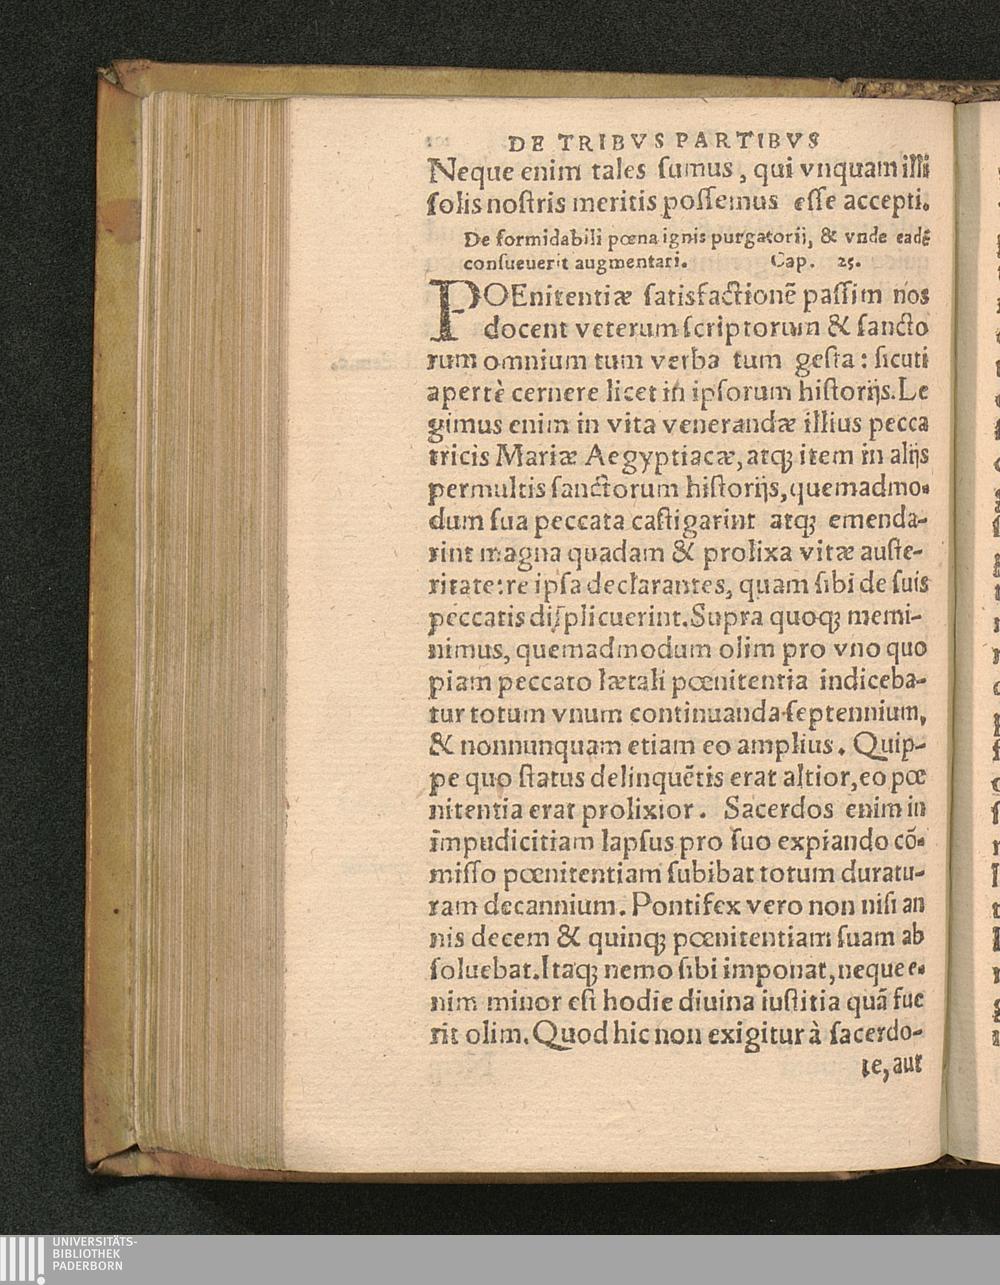 DE TRIBVS PARTIBVS
Neque enim tales ſumus, qui vnquam illi
ſolis noſtris meritis poſſemus eſſe accepti.
De formidabili pœna ignis purgatorij, & vnde eadẽ
conſueuerit augmentari. Cap. 25.
POEnitentiæ ſatisfactionẽ paſſim nos
docent veterum ſcriptorum & ſancto
rum omnium tum verba tum geſta: ſicuti
apertè cernere licet in ipſorum hiſtorijs. Le
gimus enim in vita venerandæ illius pecca
tricis Mariæ Aegyptiacæ, atq; item in alijs
permultis ſanctorum hiſtorijs, quemadmo-
dum ſua peccata caſtigarint atq; emenda-
rint magna quadam & prolixa vitæ auſte-
ritate: re ipſa declarantes, quam ſibi de ſuis
peccatis diſplicuerint. Supra quoq; memi-
nimus, quemadmodum olim pro vno quo
piam peccato lætali pœnitentia indiceba-
tur totum vnum continuanda ſeptennium,
& nonnunquam etiam eo amplius. Quip-
pe quo ſtatus delinquẽtis erat altior, eo pœ
nitentia erat prolixior. Sacerdos enim in
impudicitiam lapſus pro ſuo expiando cõ-
miſſo pœnitentiam ſubibat totum duratu-
ram decannium. Pontifex vero non niſi an
nis decem & quinq; pœnitentiam ſuam ab
ſoluebat. Itaq; nemo ſibi imponat, neque e-
nim minor eſt hodie diuina iuſtitia quã fue
rit olim. Quod hic non exigitur à ſacerdo-
te, aut
UNIVERSITÄTS-
BIBLIOTHEK
PADERBORN